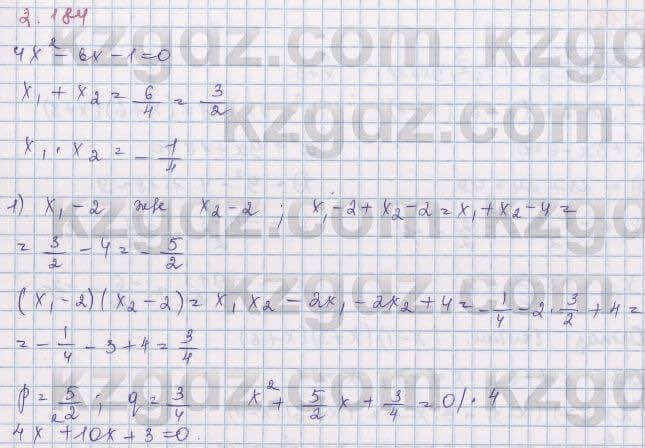 2.184
4x² - 6x - 1 = 0
x₁ + x₂ = 6/4 = 3/2
x₁ · x₂ = - 1/4
1) x₁ - 2 және x₂ - 2 ; x₁ - 2 + x₂ - 2 = x₁ + x₂ - 4 =
= 3/2 - 4 = - 5/2
(x₁ - 2)(x₂ - 2) = x₁ x₂ - 2x₁ - 2x₂ + 4 = - 1/4 - 2 · 3/2 + 4 =
= - 1/4 - 3 + 4 = 3/4
p = 5/2 ; q = 3/4 x² + 5/2 x + 3/4 = 0 / · 4
4x² + 10x + 3 = 0.
kzgdz.com
kzgdz.com
kzgdz.com
kzgdz.com